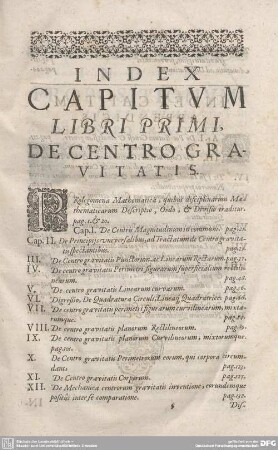 INDEX
CAPITVM
LIBRI PRIMI,
DE CENTRO GRA-
VITATIS.
PRolegomena Mathematica, quibus disciplinarum Ma-
thematicarum Descriptio, Ordo, & Divisio traditur.
pag. 1. & 20.
Cap. I. De Centro Magnitudinum in communi.
Cap. II. De Principiis universalibus, ad Tractatum de Centro gravita-
tis spectantibus.
III. De Centro gravitatis Punctorum, ac Linearum Rectarum.
IV. De centro gravitatis Perimetri figurarum superficialium
V. De centro gravitatis Linearum curvarum.
VI. Digressio, De Quadratura Circuli, Lineâq; Quadratrice.
VII. De centro gravitatis perimetri figurarum curvilinearum, mix-
tarumque.
VIII. De centro gravitatis planorum Rectilineorum.
IX. De centro gravitatis planorum Curvilineorum, mixtorum-
que.
X. De Centro gravitatis Perimetrorum eorum, qui corpora circum-
dant.
XI. De Centro gravitatis Corporum.
XII. De Mechanica centrorum gravitatis inventione, eorundemque
positâ inter se comparatione.
Dis-